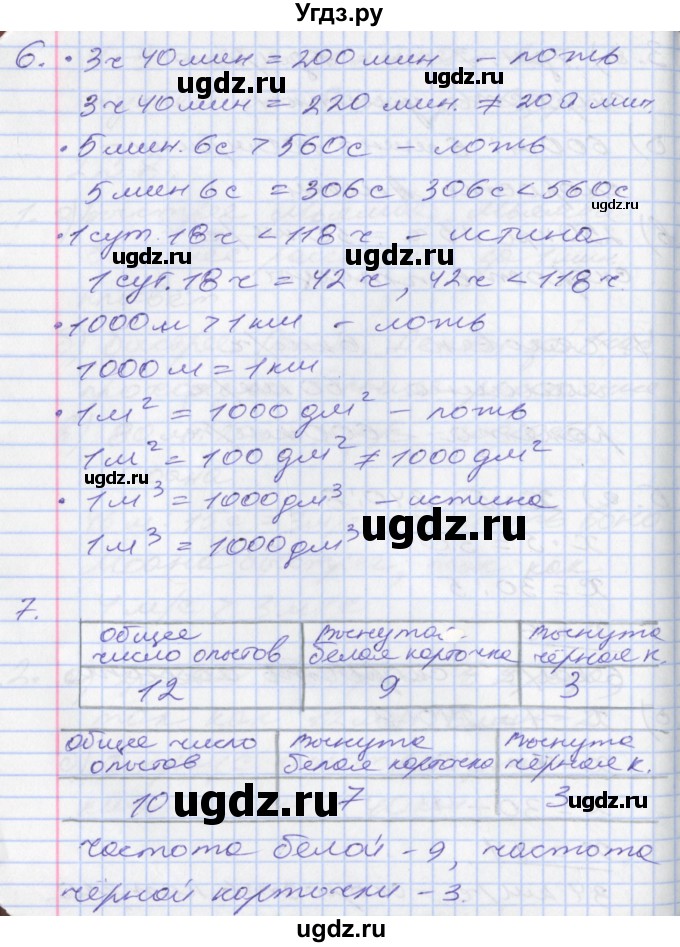 Угдз.ру
6. • 3ч 40мин = 200 мин - ложь
ugdz.ru
3ч 40мин = 220 мин. ≠ 200 мин.
• 5 мин. 6с > 560с - ложь
ugdz.ru
5 мин 6с = 306с 306с < 560с
ugdz.ru
• 1 сут. 18ч < 118 ч - истина
ugdz.ru ugdz.ru
1 сут. 18ч = 42 ч, 42ч < 118 ч.
• 1000м > 1 км - ложь
1000 м = 1 км
• 1 м² = 1000 дм² - ложь
1 м² = 100 дм² ≠ 1000 дм²
ugdz.ru
• 1 м³ = 1000дм³ - истина
1 м³ = 1000 дм³
ugdz.ru
7.
Общее число опытов | Вынута белая карточка | Вынута чёрная к.
12 | 9 | 3
Общее число опытов | Вынута белая карточка | Вынута чёрная к.
10 | 7 | 3
ugdz.ru ugdz.ru
частота белой - 9, частота
чёрной карточки - 3.
ugdz.ru